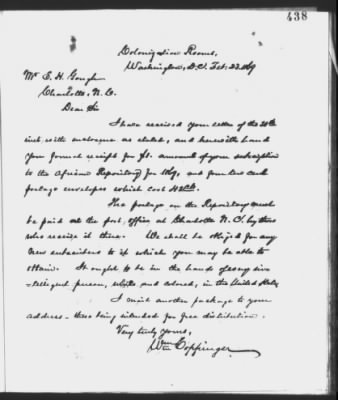 438
Colonization Rooms,
Washington, D.C. Feb. 23. 1869
Mr E. H. Gough
Charlotte, N. C.
Dear Sir
I have received your letter of the 20th
inst. with enclosure as stated, and herewith hand
you formal receipt for $1. amount of your subscription
to the African Repository for 1869, and fourteen cash
postage envelopes which cost 42cts.
The postage on the Repository must
be paid at the post office at Charlotte N. C. by those
who receive it there. We shall be obliged for any
new subscribers to it which you may be able to
obtain. It ought to be in the hands of every in-
telligent person, white and colored, in the United States.
I mail another package to your
address - these being intended for free distribution.
Very truly yours,
Wm Coppinger